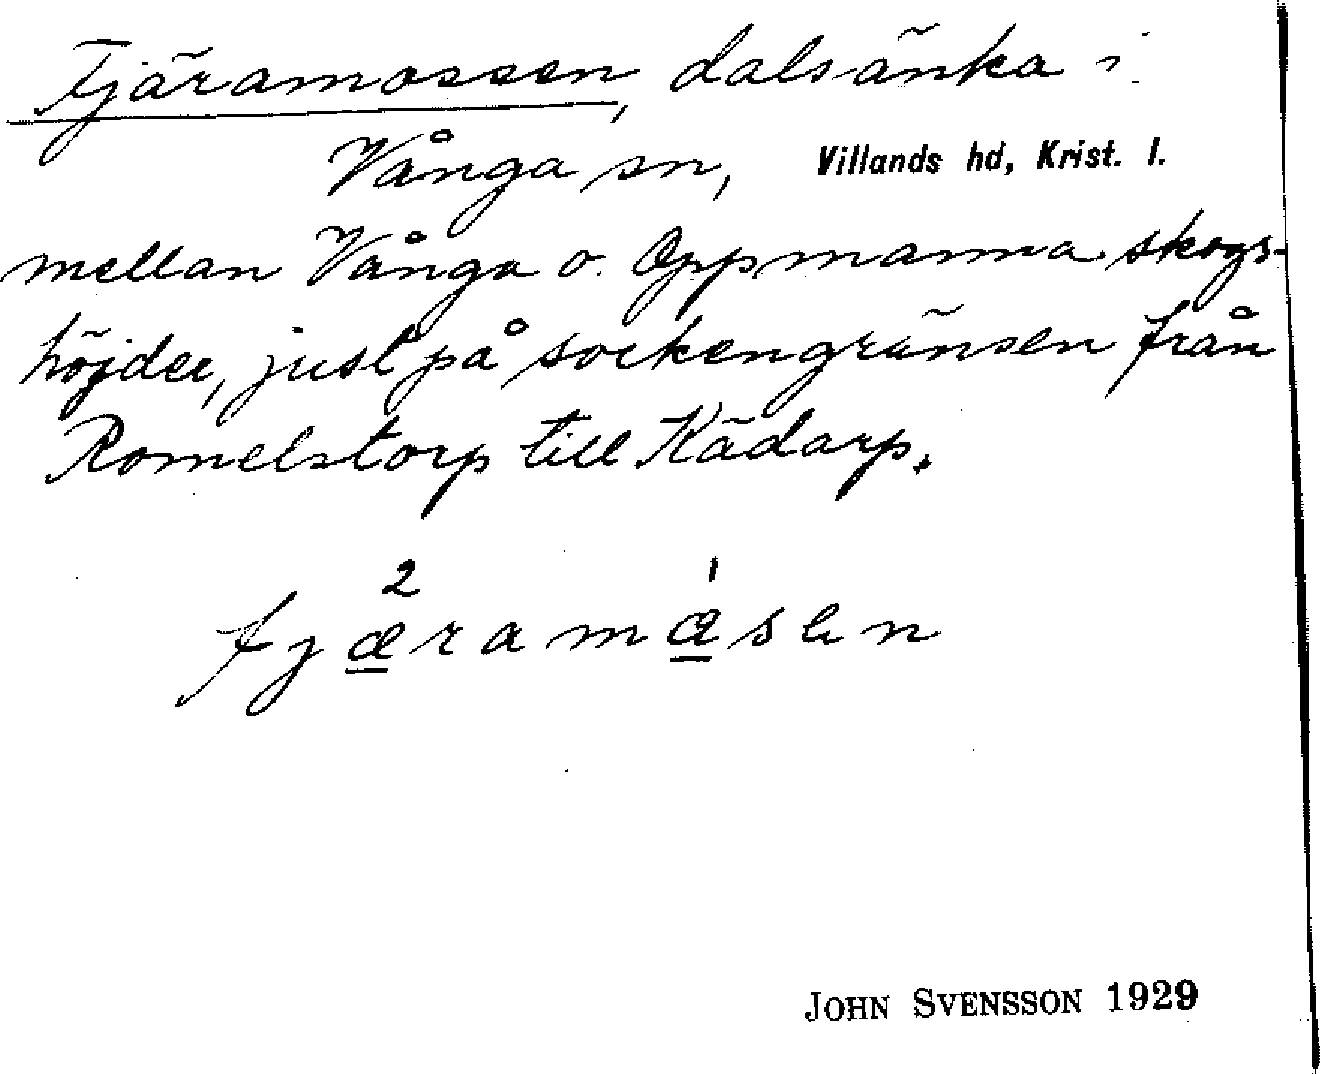 Tjäramossen, dalsänka i
Vånga sn, Villands hd, Krist. l.
mellan Vånga o. Oppmanna skogs-
höjder, just på sockengränsen från
Romelstorp till Kädarp.
2 1
tjæramåsen
JOHN SVENSSON 1929